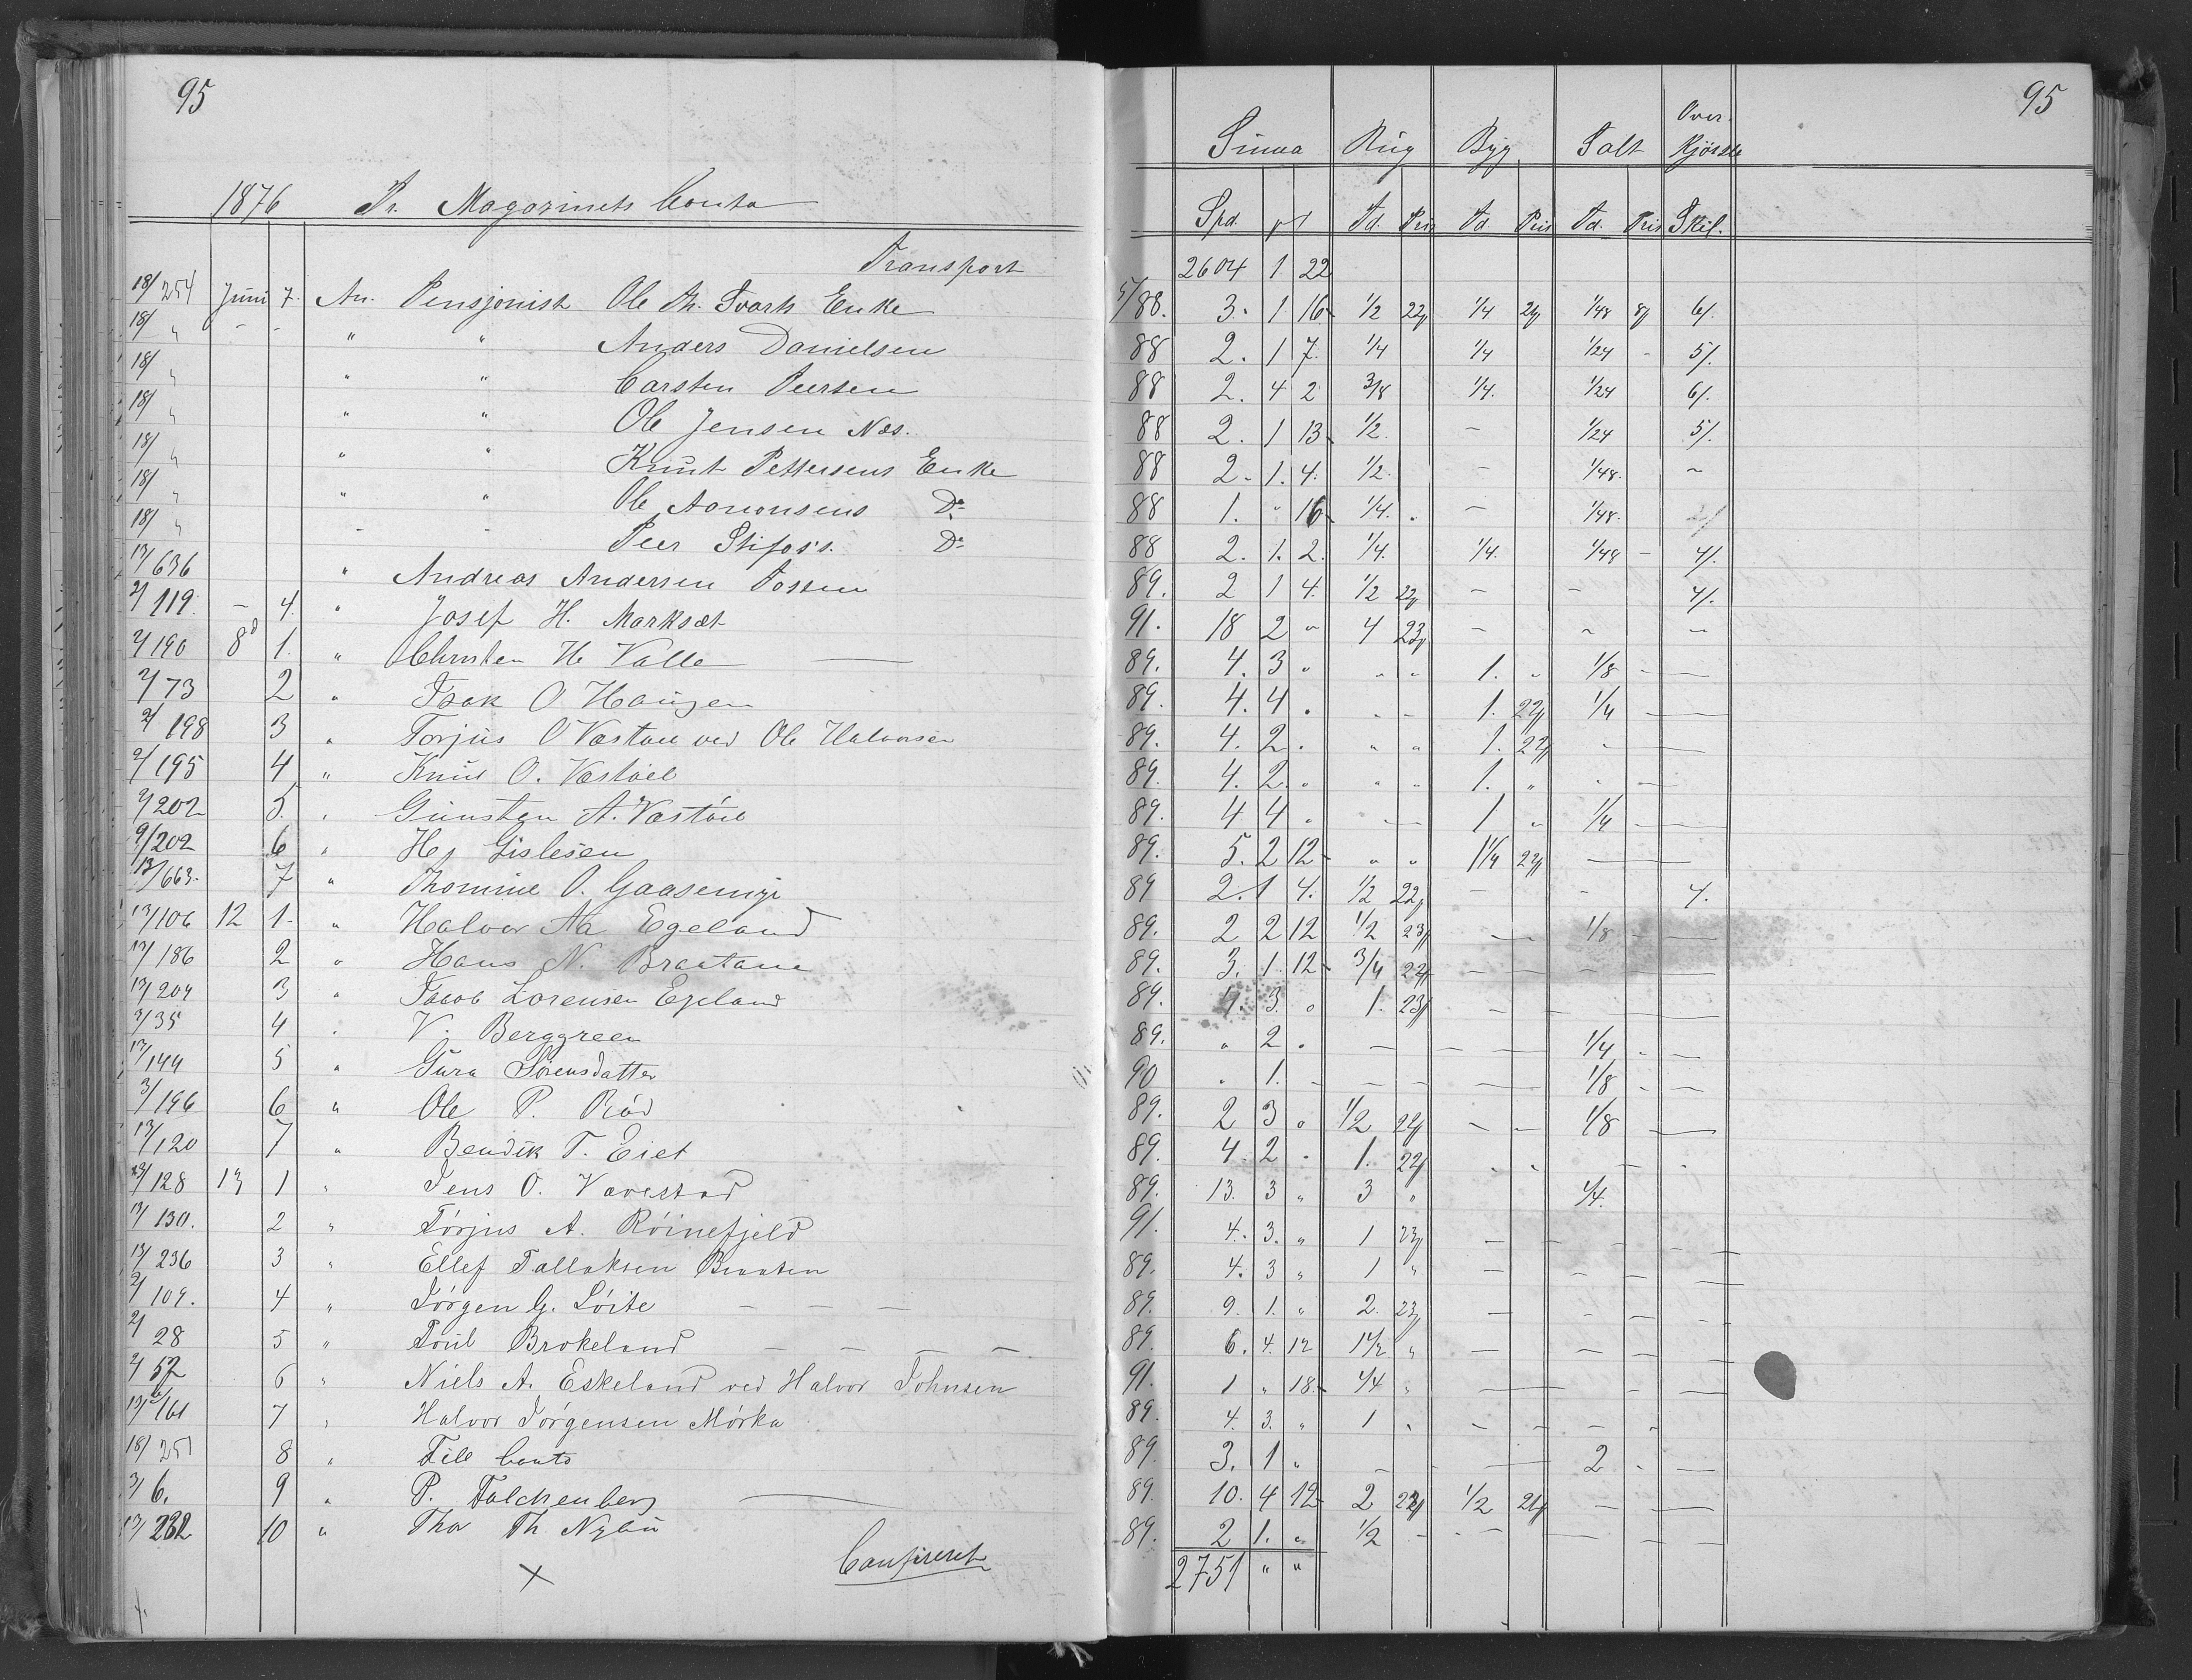 95
1876 Pr. Magazinets Conto
Transport
18/254 Juni 7. An. Pensjonist Ole Th. Svarts Enke
18/ " - - " " Anders Danielsen
18/ " " " Carsten Peersen
18/ " " " Ole Jensen Næs.
18/ " " " Knut Pettersens Enke
18/ " " " Ole Aanonsens Do
18/ " - - Peer Stifoss. Do
13/636 " Andreas Andersen Fossen
2/119. - 4. " Josef H. Marksæt
2/190 8d 1. " Christen H. Valle
2/73 2 " Isak O Haugen
2/198 3 " Torjus O Væstøel ved Ole Halvorsen
2/195 4 " Knud O. Vastøel
2/202 5. " Gunsten A. Vastøel
9/202 6 " Hs Gislesen
13/663. 7 " Thomine O. Gaasemyr
13/106 12 1. " Halvor Aa Egeland
13/186 2 " Hans N. Braatane
13/204 3 " Jacob Lorensen Egeland
3/35 4 " V. Berggreen
13/144 5 " Gura Sørensdatter
3/196 6 " Ole P. Rød
13/120 7 " Bendik T. Eiet
13/128 13 1 " Jens O. Vavestad
13/130. 2 " Tørjus A. Røinefjeld
13/236 3 " Ellef Tallaksen Braaten
2/109. 4 " Jørgen G. Løite - - -
2/28 5 " Toul Brokeland - - - -
2/52 6 " Niels A. Eskeland ved Halvor Johnsen
13/161 7 " Halvor Jørgensen Mørka
18/251 8 " Fill Conto
3/6. 9 " P. Falchenberg
13/232 10 " Thor Th. Nybu
x Confireret
95
Suma Rug Byg Salt Over-
Kjørsel
Spd. Td. Pris Td Pris Td. Pris Skil.
2604 1 22
5/88. 3. 1 16 1/2 22 1/4 21 1/48 8 6/.
88 2. 1 7. 1/4 1/4 1/24 - 5/.
88 2. 4 2 3/8 1/4. 1/24 6/.
88 2. 1 13 1/2. - 1/24 5/.
88 2. 1. 4. 1/2. - 1/48. ~
88 1. " 16 1/4. - 1/48.
88 2. 1. 2. 1/4. 1/4. 1/48 - 4/.
89. 2 1 4. 1/2 22 - - 4/.
91. 18 2 " 4 23 - ~ ~
89. 4. 3 " " " 1. " 1/8 - -
89. 4. 4 . " - 1. 22 1/4 - -
89. 4. 2 . " " 1. 22 - -
89. 4. 2. " " " 1. " . - -
89. 4 4 " - - 1 " 1/4 - -
89. 5. 2 12 " " 1 1/4 22 -
89 2. 1 4. 1/2 22 - - 4.
89. 2 2 12 1/2 23 - 1/8 - -
89. 3. 1 12 3/4 22 - - - - -
89. 4. 3. " 1. 23 - - -
89. " 2 . - - - 1/4 - -
90 " 1. - - - - 1/8 - -
89. 2 3 " 1/2 22 - - 1/8 -
89. 4. 2 . 1. 22 . . - .
89. 13. 3 " 3 " 1/4.
91. 4. 3. " 1 23 - - - - -
89. 4. 3 " 1 " - - - -
89. 9. 1. " 2. 23 - - - -
89. 6. 4. 12 1 1/2 " - - - -
91. 1 " 18. 1/4 " - - - -
89. 4. 3. " 1 " - - - -
89. 3. 1 " - - - 2 - -
89. 10. 4 12 2 22 1/2 21 - -
89. 2 1. " 1/2 - - - - - -
2751 " "